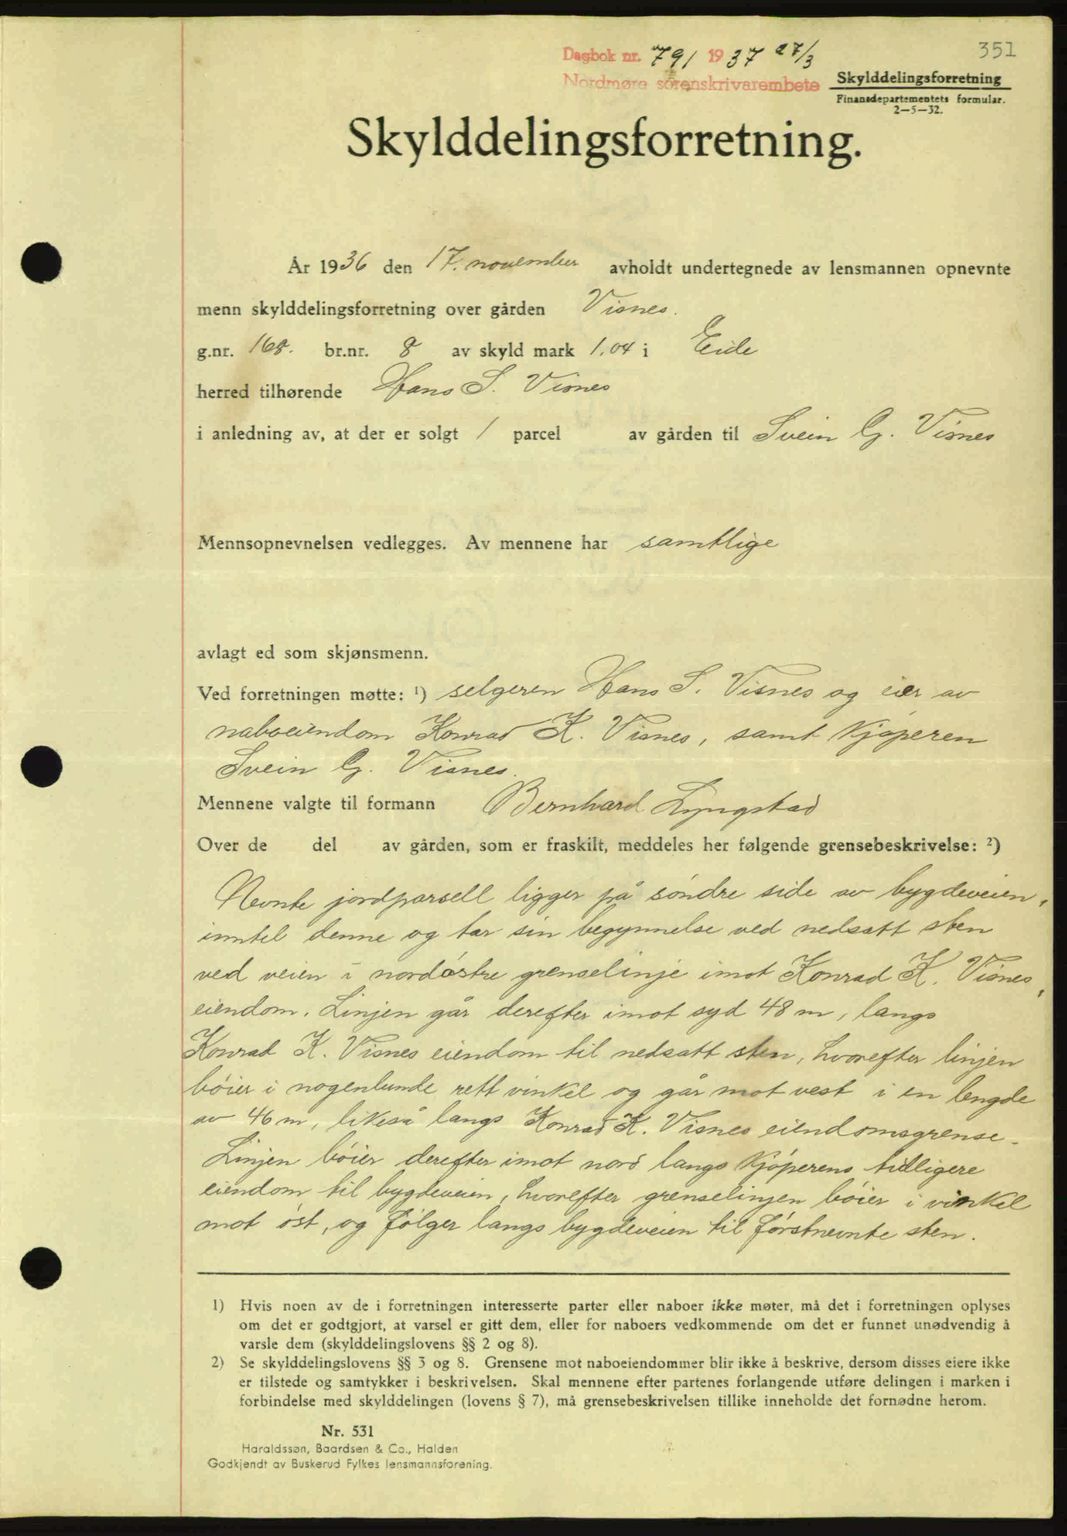 351
Dagbok nr. 791 1937 27/3
Nordmøre sorenskrivarembete
Skylddelingsforretning
Finansdepartementets formular.
2—5—32.
Skylddelingsforretning.
År 1936 den 17. november avholdt undertegnede av lensmannen opnevnte
menn skylddelingsforretning over gården Visnes.
g.nr. 168. br.nr. 8 av skyld mark 1.04 i Eide
herred tilhørende Hans S. Visnes
i anledning av, at der er solgt 1 parcel av gården til Svein G. Visnes
Mennsopnevnelsen vedlegges. Av mennene har samtlige
avlagt ed som skjønsmenn.
Ved forretningen møtte: ¹) selgeren Hans S. Visnes og eier av
naboeiendom Konrad K. Visnes, samt kjøperen
Svein G. Visnes.
Mennene valgte til formann Bernhard Lyngstad
Over de del av gården, som er fraskilt, meddeles her følgende grensebeskrivelse: ²)
Nevnte jordparsell ligger på søndre side av bygdeveien,
inntil denne og tar sin begynnelse ved nedsatt sten
ved veien i nordøstre grenselinje imot Konrad K. Visnes,
eiendom. Linjen går derefter imot syd 48 m, langs
Konrad K. Visnes eiendom til nedsatt sten, hvorefter linjen
bøier i nogenlunde rett vinkel og går mot vest i en lengde
av 46 m, likeså langs Konrad K. Visnes eiendomsgrense.
Linjen bøier derefter imot nord langs kjøperens tidligere
eiendom til bygdeveien, hvorefter grenselinjen bøier i vinkel
mot øst, og følger langs bygdeveien til førstnevnte sten.
1) Hvis noen av de i forretningen interesserte parter eller naboer ikke møter, må det i forretningen oplyses
om det er godtgjort, at varsel er gitt dem, eller for naboers vedkommende om det er funnet unødvendig å
varsle dem (skylddelingslovens §§ 2 og 8).
2) Se skylddelingslovens §§ 3 og 8. Grensene mot naboeiendommer blir ikke å beskrive, dersom disses eiere ikke
er tilstede og samtykker i beskrivelsen. Skal mennene efter partenes forlangende utføre delingen i marken i
forbindelse med skylddelingen (lovens § 7), må grensebeskrivelsen tillike inneholde det fornødne herom.
Nr. 531
Haraldssøn, Baardsen & Co., Halden
Godkjendt av Buskerud Fylkes lensmannsforening.